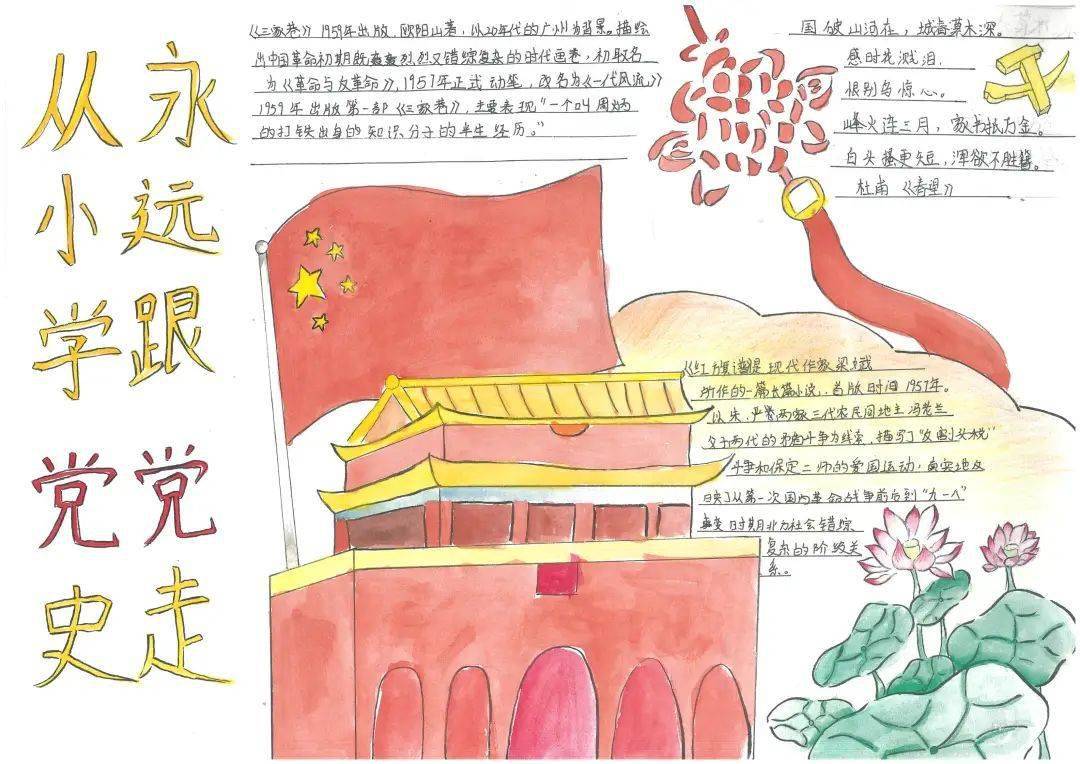 从小学党史
永远跟党走
《三家巷》1959年出版,欧阳山著,以20年代的广州为背景。描绘
出中国革命初期既轰轰烈烈又错综复杂的时代画卷,初取名
为《革命与反革命》,1957年正式动笔,改名为《一代风流》
1959年出版第一部《三家巷》,主要表现“一个叫周炳
的打铁出身的知识分子的半生经历。”
国破山河在,城春草木深。
感时花溅泪,
恨别鸟惊心。
峰火连三月,家书抵万金。
白头搔更短,浑欲不胜簪。
杜甫《春望》
《红旗谱》是现代作家梁斌
所作的一篇长篇小说,首版时间1957年。
以朱、严两家三代农民同地主冯兰兰
父子两代的矛盾斗争为线索,描写了“反割头税”
斗争和保定二师的爱国运动,真实地反
映了从第一次国内革命战争前后到“九一八”
事变时期北方社会错综
复杂的阶级关
系。